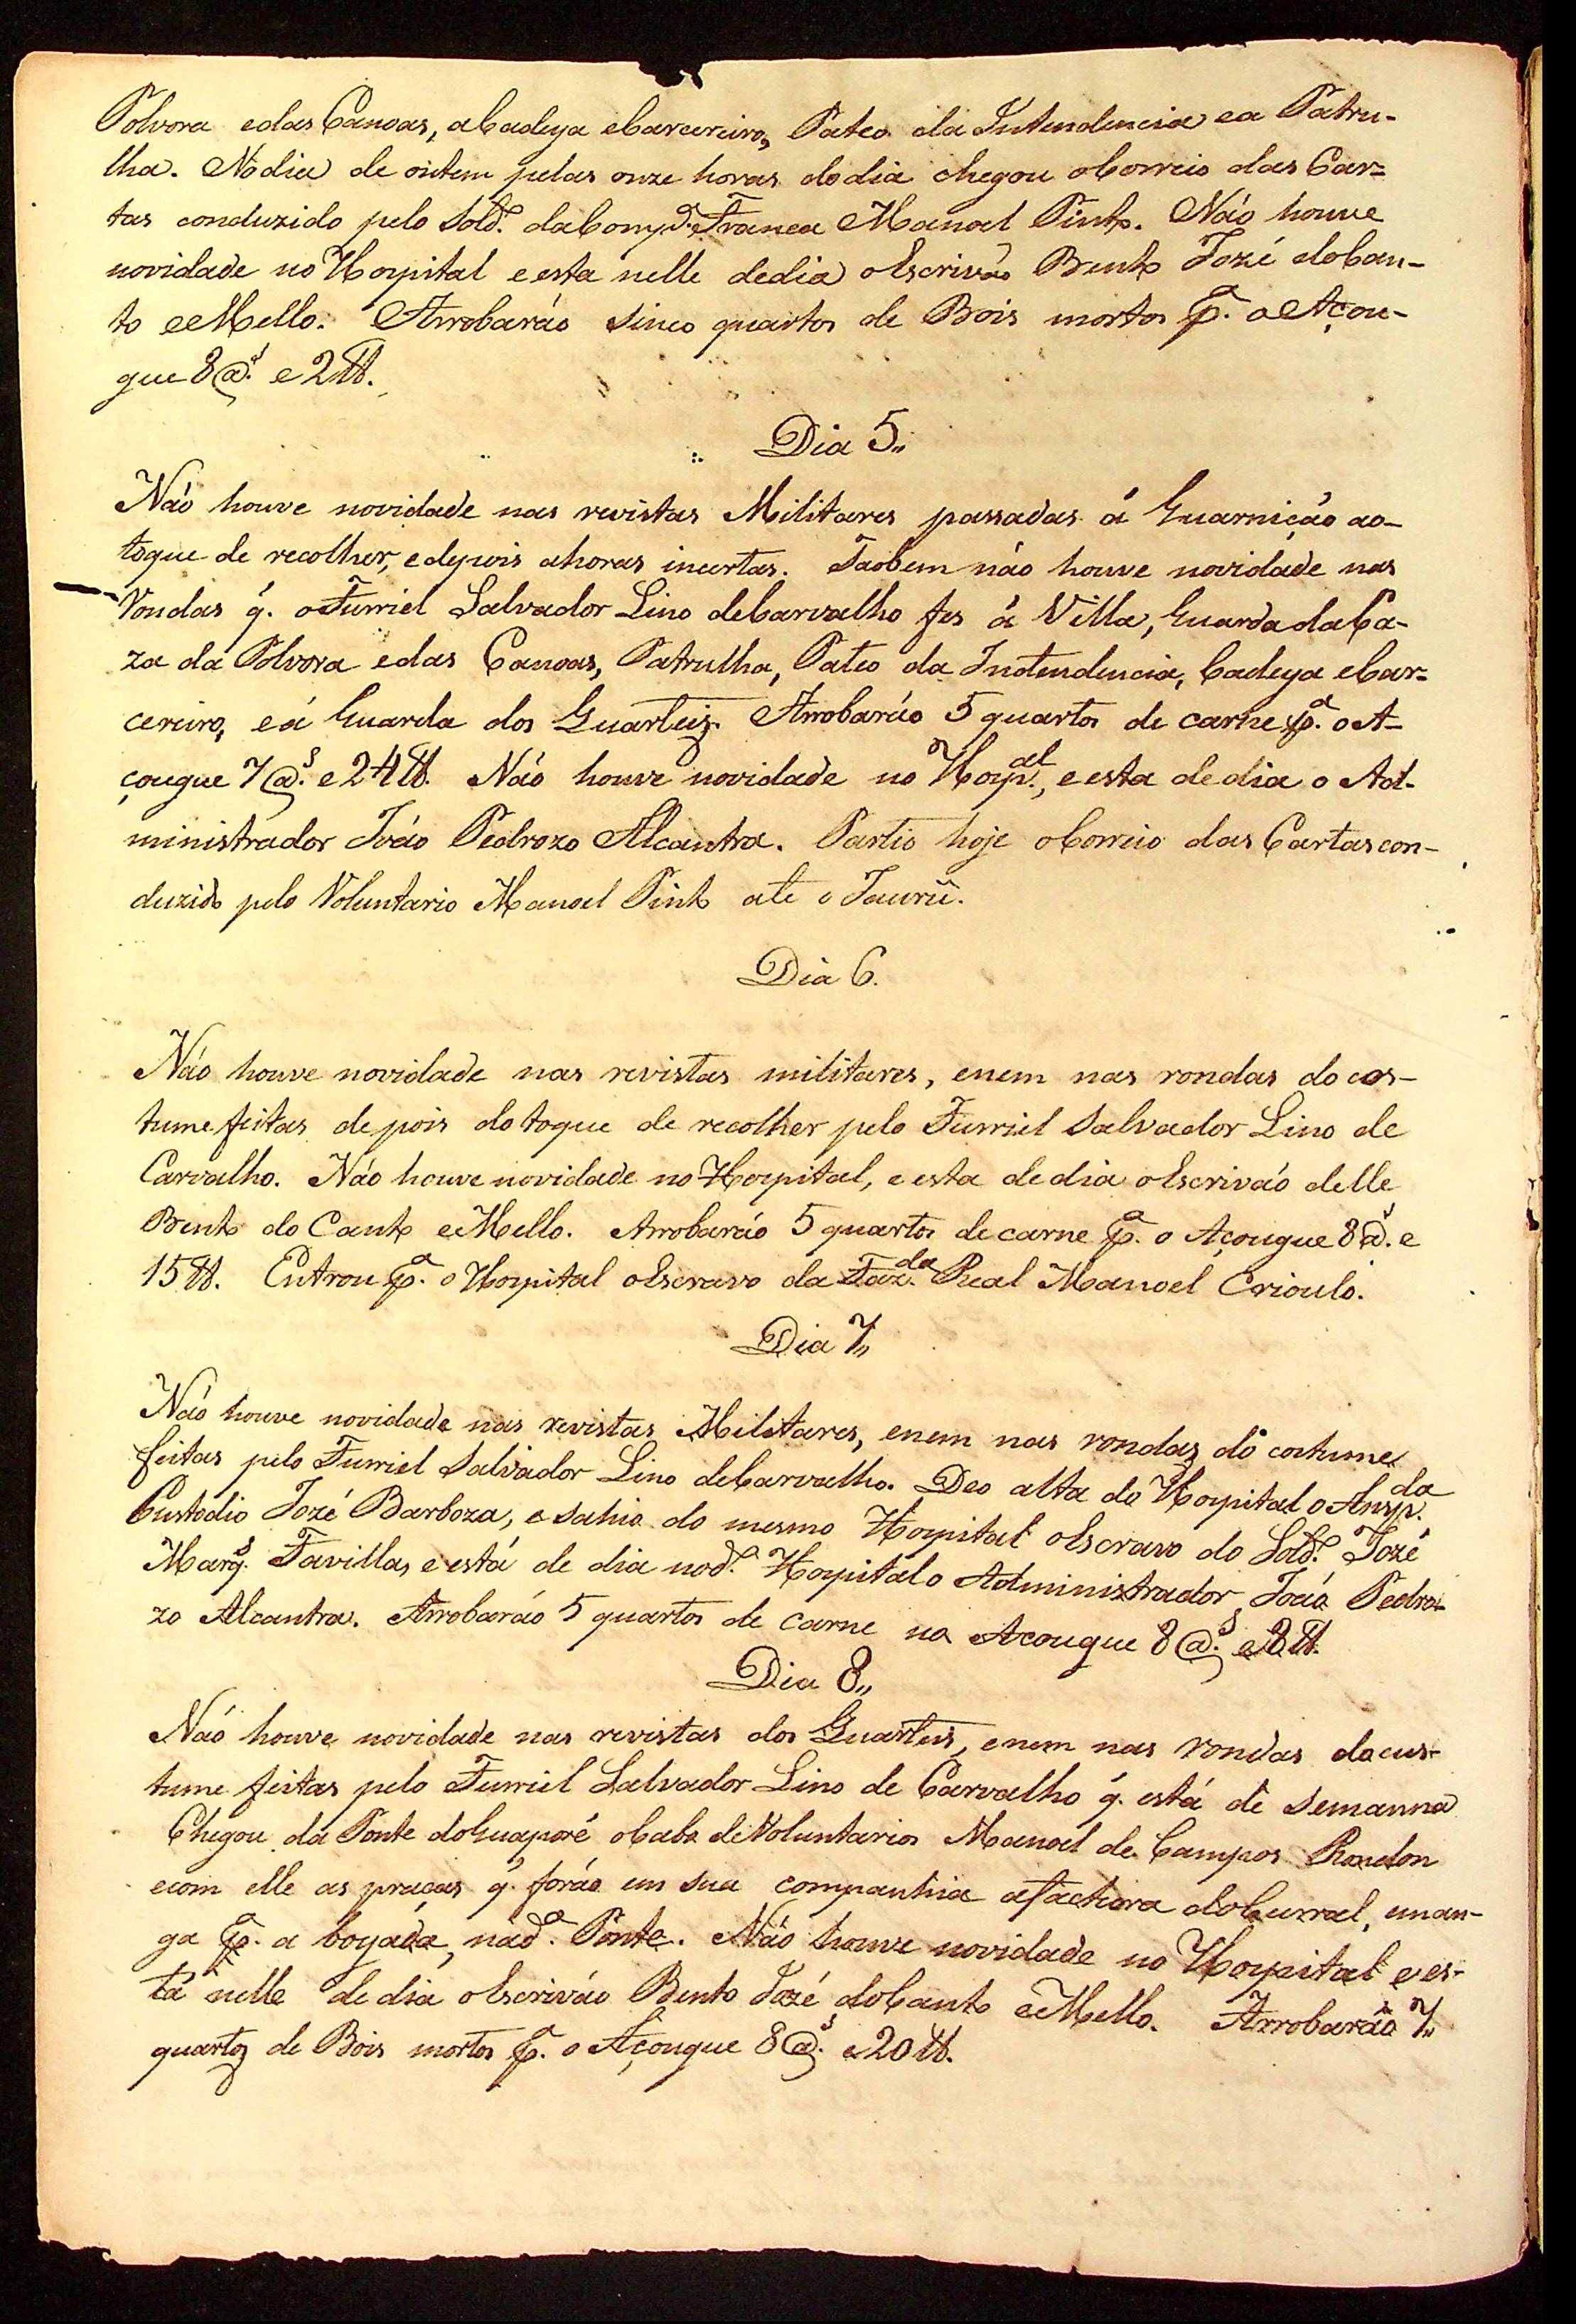 Polvora edas Canoas, aCadeya eCarcereiro, Pateo da Intendencia ea Patru-
lha. Nodia de ontem pelas onze horas dodia chegou oCorreio das Car=
tas conduzido pelo Sold.º daComp.ª Franca Manoel Pinto. Não houve
novidade no Hospital e esta nelle dedia oEscrivão Bento Jozé doCan-
to eMello. Arrobarão sinco quartos de Bois mortos p.ª o Açou-
gue 8@.s e 2 lb.
Dia 5,,
Não houve novidade nas revistas Militares passadas á Guarnição ao-
toque de recolher, edepois ahoras incertas. Taobem não houve novidade nas
Rondas q̃. oFurriel Salvador Lino deCarvalho fes á Villa, Guarda daCa-
za da Polvora edas Canoas, Patrulha, Pateo da Indendencia, Cadeya eCar=
cereiro, eá Guarda dos Quarteis. Arrobarão 5 quartos de carne p.ª oA-
çougue 7@.s e 24 lb. Não houve novidade no Hosp.al, eesta dedia o Ad-
ministrador João Pedrozo Alcantra. Partio hoje oCorreio das Cartas con-
duzido pelo Voluntario Manoel Pinto ate o Jaurú.
Dia 6.
Não houve novidade nas revistas militares, enem nas rondas do cos-
tume feitas depois dotoque de recolher pelo Furriel Salvador Lino de
Carvalho. Não houve novidade no Hospital, eesta dedia oEscrivaõ delle
Bento do Canto eMello. Arrobarão 5 quartos decarne p.ª o Açougue 8@.s e
15 lb. Entrou p.ª o Hospital oEscravo da Faz.da Real Manoel Crioulo.
Dia 7,,
Não houve novidade nas revistas Militares, enem nas rondas do costume
feitas pelo Furriel Salvador Lino deCarvalho. Deo alta do Hospital o Ansp.da
Custodio Jozé Barboza, e sahio do mesmo Hospital oEscravo do Sold.º Jozé
Marq.s Favillas, e está de dia nod.º Hospital o Administrador João Pedro-
zo Alcantra. Arrobarão 5 quartos de carne no Acougue 8@.s e 2 lb.
Dia 8,,
Não houve novidade nas revistas dos Quarteis, enem nas rondas docus-
tume feitas pelo Furriel Salvador Lino de Carvalho q̃. está de Semanna
Chegou da Ponte doGuaporé oCabo deVoluntarios Manoel de Campos Rondon
ecom elle as praças q̃. forão em sua companhia afactura doCurral, eman-
ga p.ª a boyada, nad.ª Ponte. Não houve novidade no Hospital e es-
tá nelle dedia oEscrivão Bento Jozé doCanto eMello. Arrobarão 7,,
quartos de Bois mortos p.ª o Açougue 8@.s e 20 lb.